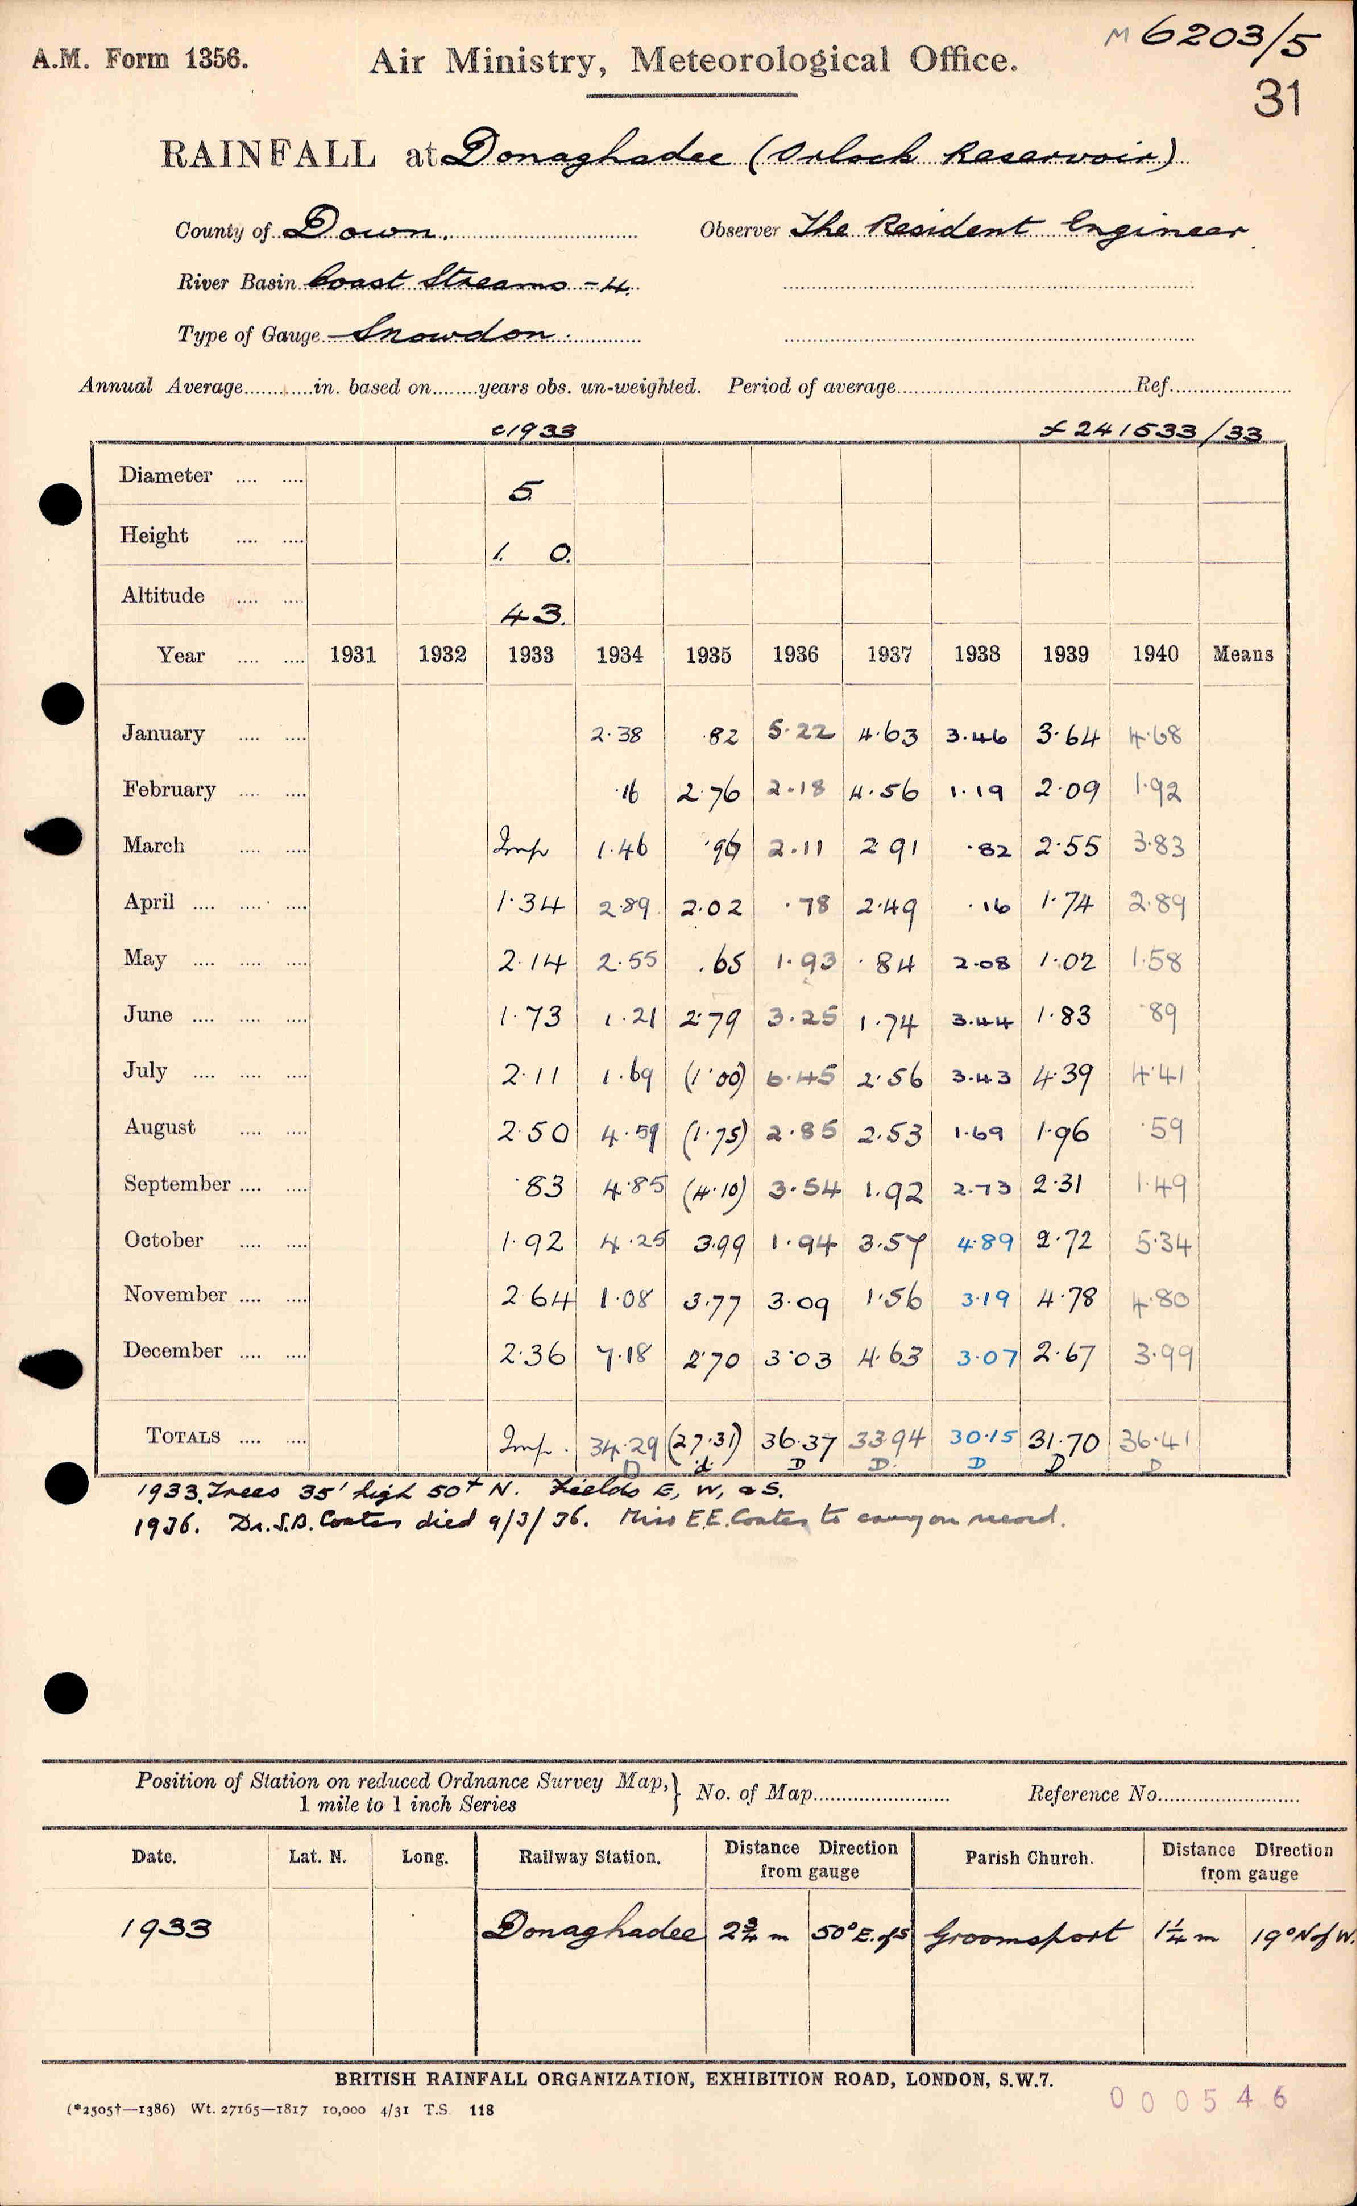 M 6203/5
A.M. Form 1356. Air Ministry, Meteorological Office.
31
RAINFALL at Donaghadee (Orlock Reservoir)
County of Down. Observer The Resident Engineer
River Basin Coast Streams - 4.
Type of Gauge Snowdon.
Annual Average.........in. based on........years obs. un-weighted. Period of average............Ref............
c1933 £ 241533/33
Diameter .... .... 5
Height .... .... 1. 0.
Altitude .... .... 43.
Year .... .... 1931 1932 1933 1934 1935 1936 1937 1938 1939 1940 Means
January .... .... 2·38 ·82 5·22 4·63 3·46 3·64 4·68
February .... .... ·16 2·76 2·18 4·56 1·19 2·09 1·92
March .... .... Imp 1·46 ·96 2·11 2 91 ·82 2·55 3·83
April .... .... .... 1·34 2·89 2·02 ·78 2·49 ·16 1·74 2·89
May .... .... .... 2·14 2·55 ·65 1·93 ·84 2·08 1·02 1·58
June .... .... .... 1·73 1·21 2·79 3·25 1·74 3·44 1·83 ·89
July .... .... .... 2·11 1·69 (1·00) 6·45 2·56 3·43 4·39 4·41
August .... .... 2·50 4·59 (1·75) 2·85 2·53 1·69 1·96 ·59
September .... .... ·83 4·85 (4·10) 3·54 1·92 2·73 2·31 1·49
October .... .... 1·92 4·25 3·99 1·94 3·57 4·89 2·72 5·34
November .... .... 2 64 1·08 3·77 3·09 1·56 3·19 4·78 4·80
December .... .... 2·36 7·18 2·70 3·03 4·63 3·07 2·67 3·99
TOTALS .... .... Imp. 34·29 (27·31) 36·37 33·94 30·15 31·70 36·41
D d D D D D D
1933. Trees 35' high 50+ N. Fields E, W, & S.
1936. Dr. S.B. Coates died 9/3/36. Miss E.E. Coates to carry on record.
Position of Station on reduced Ordnance Survey Map,} No. of Map............ Reference No............
1 mile to 1 inch Series
Date. Lat. N. Long. Railway Station. Distance Direction from gauge Parish Church. Distance Direction from gauge
1933 Donaghadee 2¾ m 50° E. of S Groomsport 1¼ m 19° N of W.
BRITISH RAINFALL ORGANIZATION, EXHIBITION ROAD, LONDON, S.W.7.
(*2505†—1386) Wt. 27165—1817 10,000 4/31 T.S. 118
000546